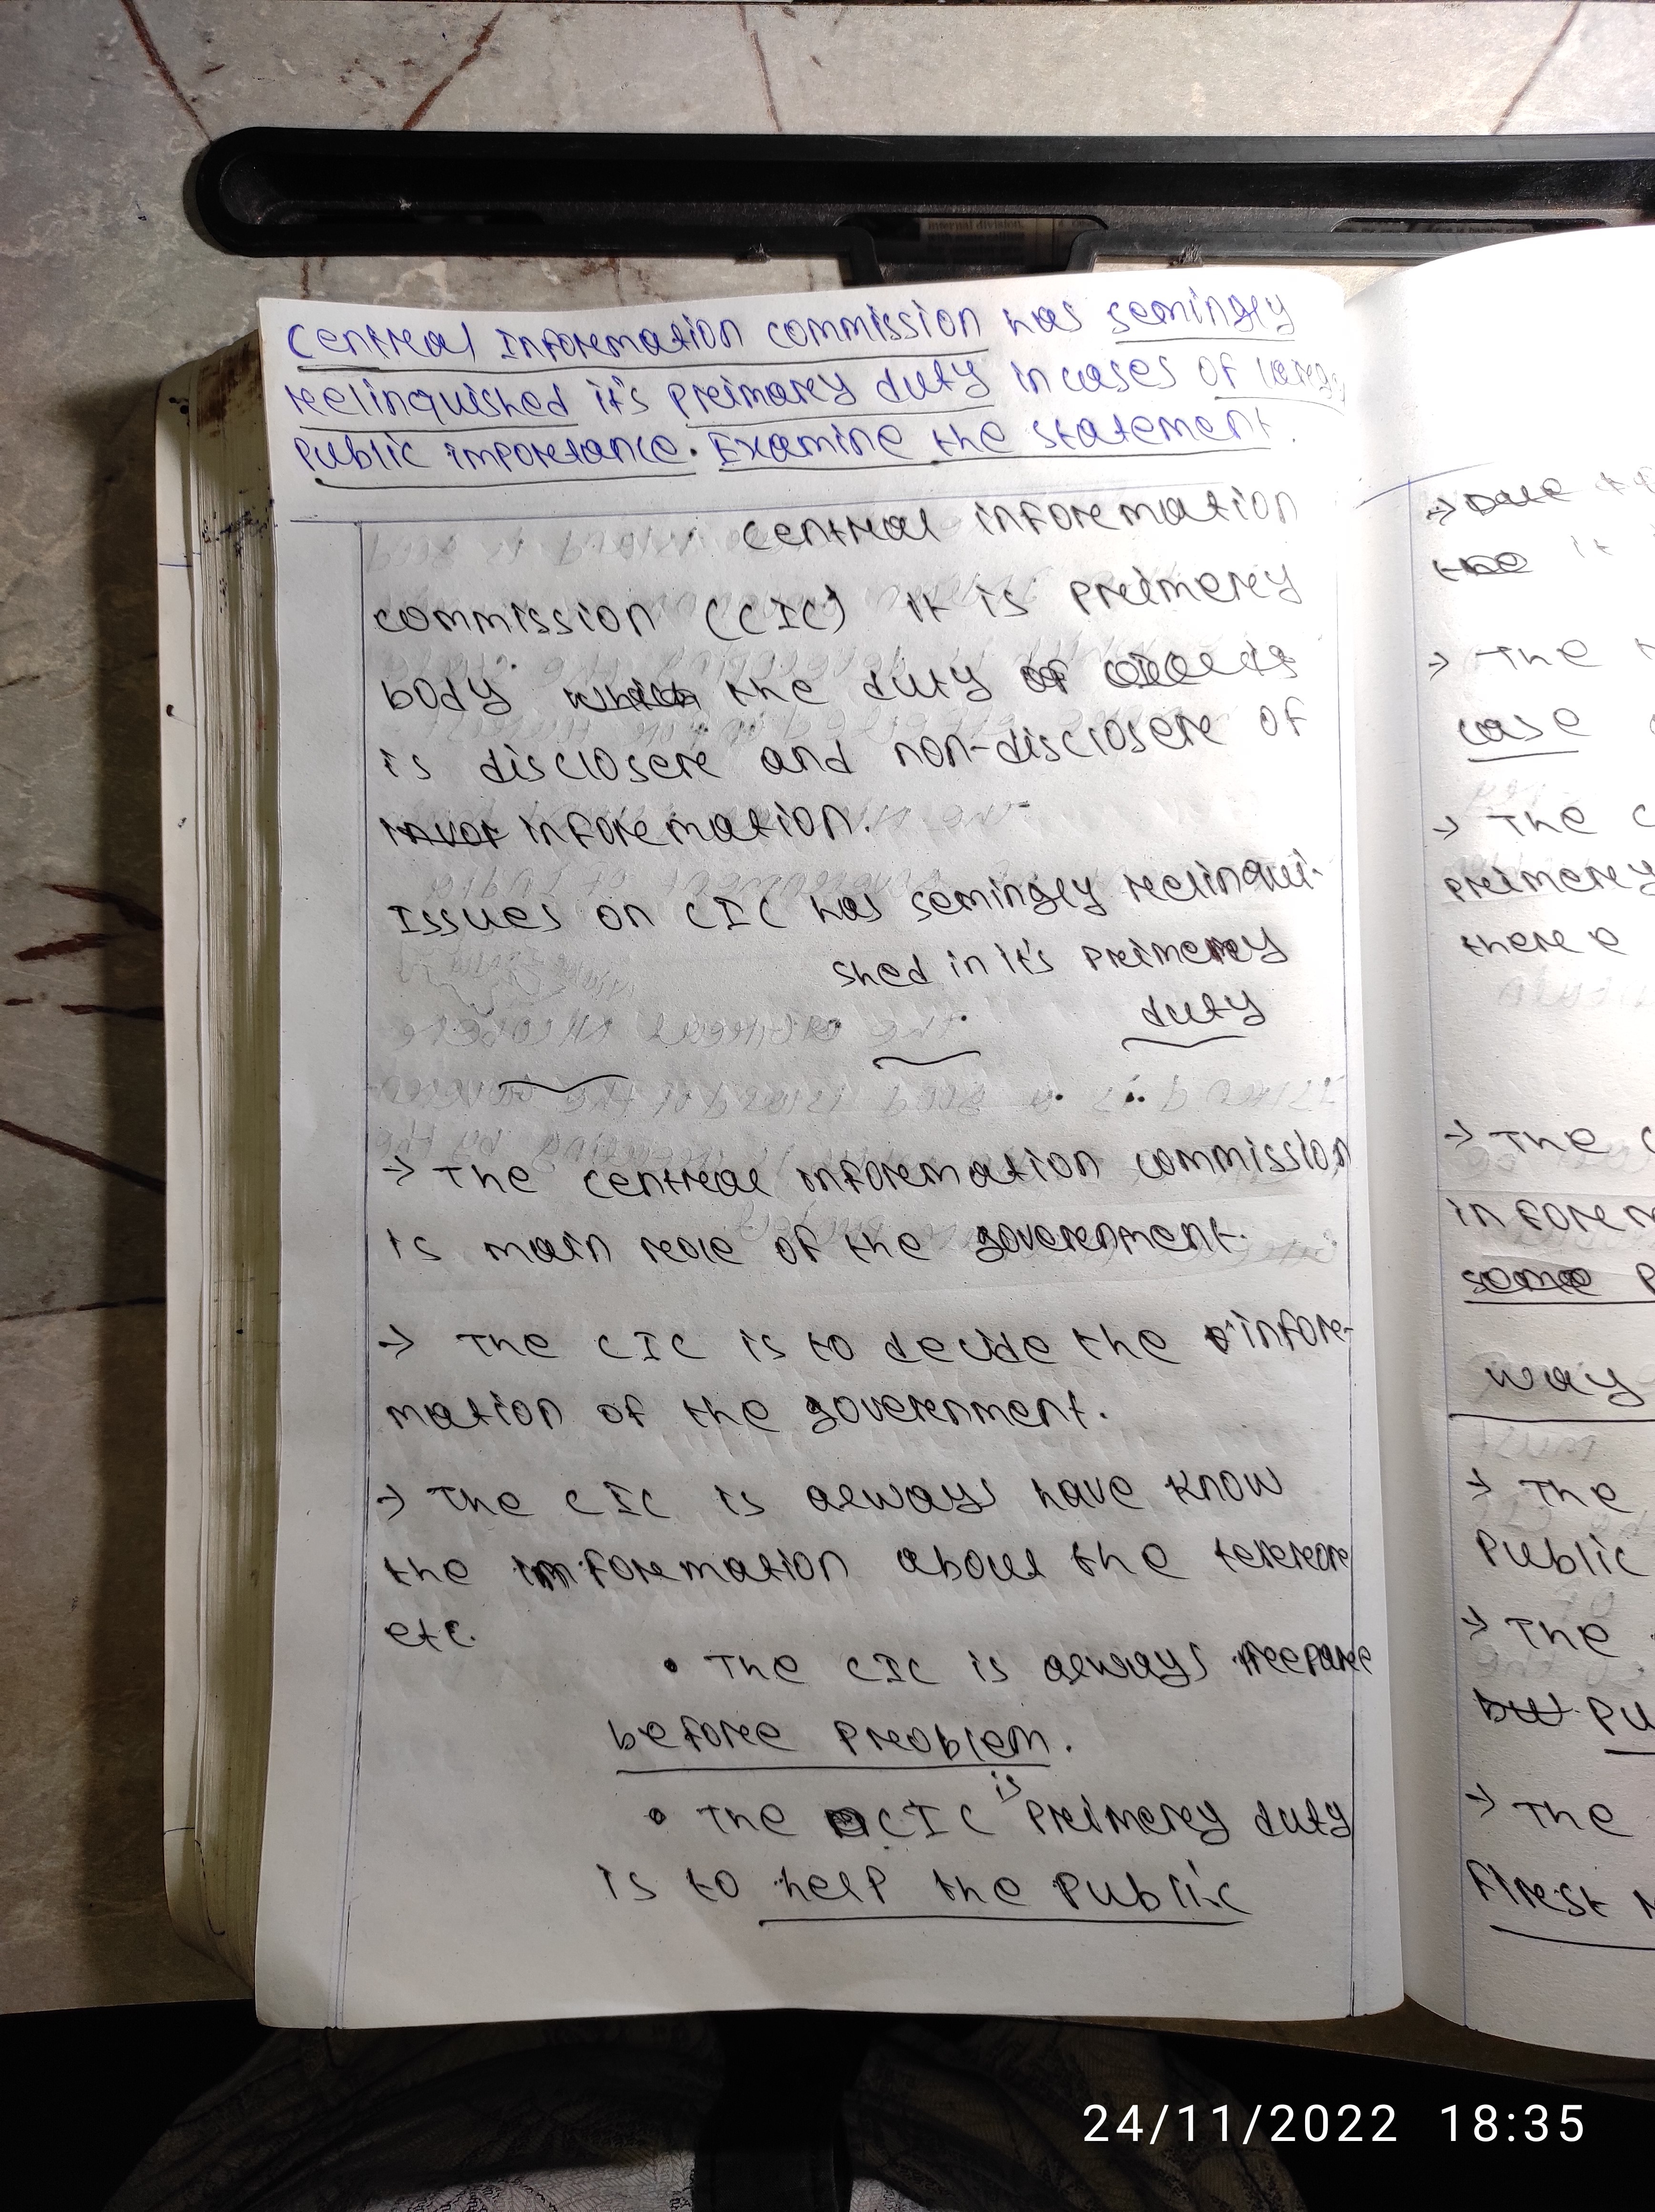 Central Information commission has semingly
relinquished it's primary duty in cases of large
public importance. Examine the statement.
central information
commission (CIC) it is primery
body which the duty of
is disclosere and non-disclosere of
information.
Issues on CIC has semingly relinqui-
shed in it's primery
duty
→ The central information commission
is main role of the government.
→ The CIC is to decide the infor-
mation of the government.
→ The CIC is always have know
the information about the
etc.
• The CIC is always prepare
before problem.
• The CIC is primery duty
is to help the public
→ Date
the it
→ The
case
→ The C
primery
there
→ The C
inform
some P
way
→ The
Public
→ The
but Pu
→ The
First
24/11/2022 18:35